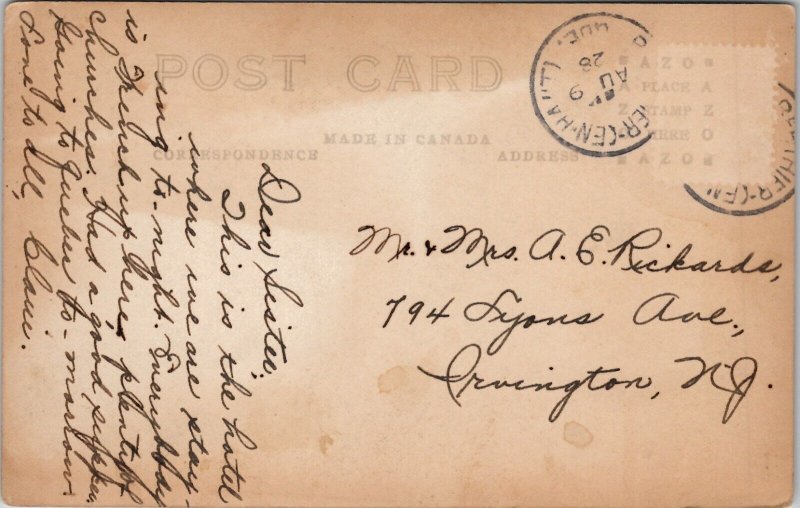 POST CARD
MADE IN CANADA
CORRESPONDENCE
ADDRESS
AZO
A PLACE A
Z STAMP Z
O HERE O
AZO
HIER-(EN-HA
QUE.
AU 9
28
HIER-(EN
Dear Sister:
This is the hotel
where we are stay-
ing to-night. Everybody
is French up here, plenty of
churches. Had a good supper.
Going to Quebec to-morrow.
Love to all,
Mr. & Mrs. A. E. Rickards,
794 Lyons Ave.,
Irvington, N.J.